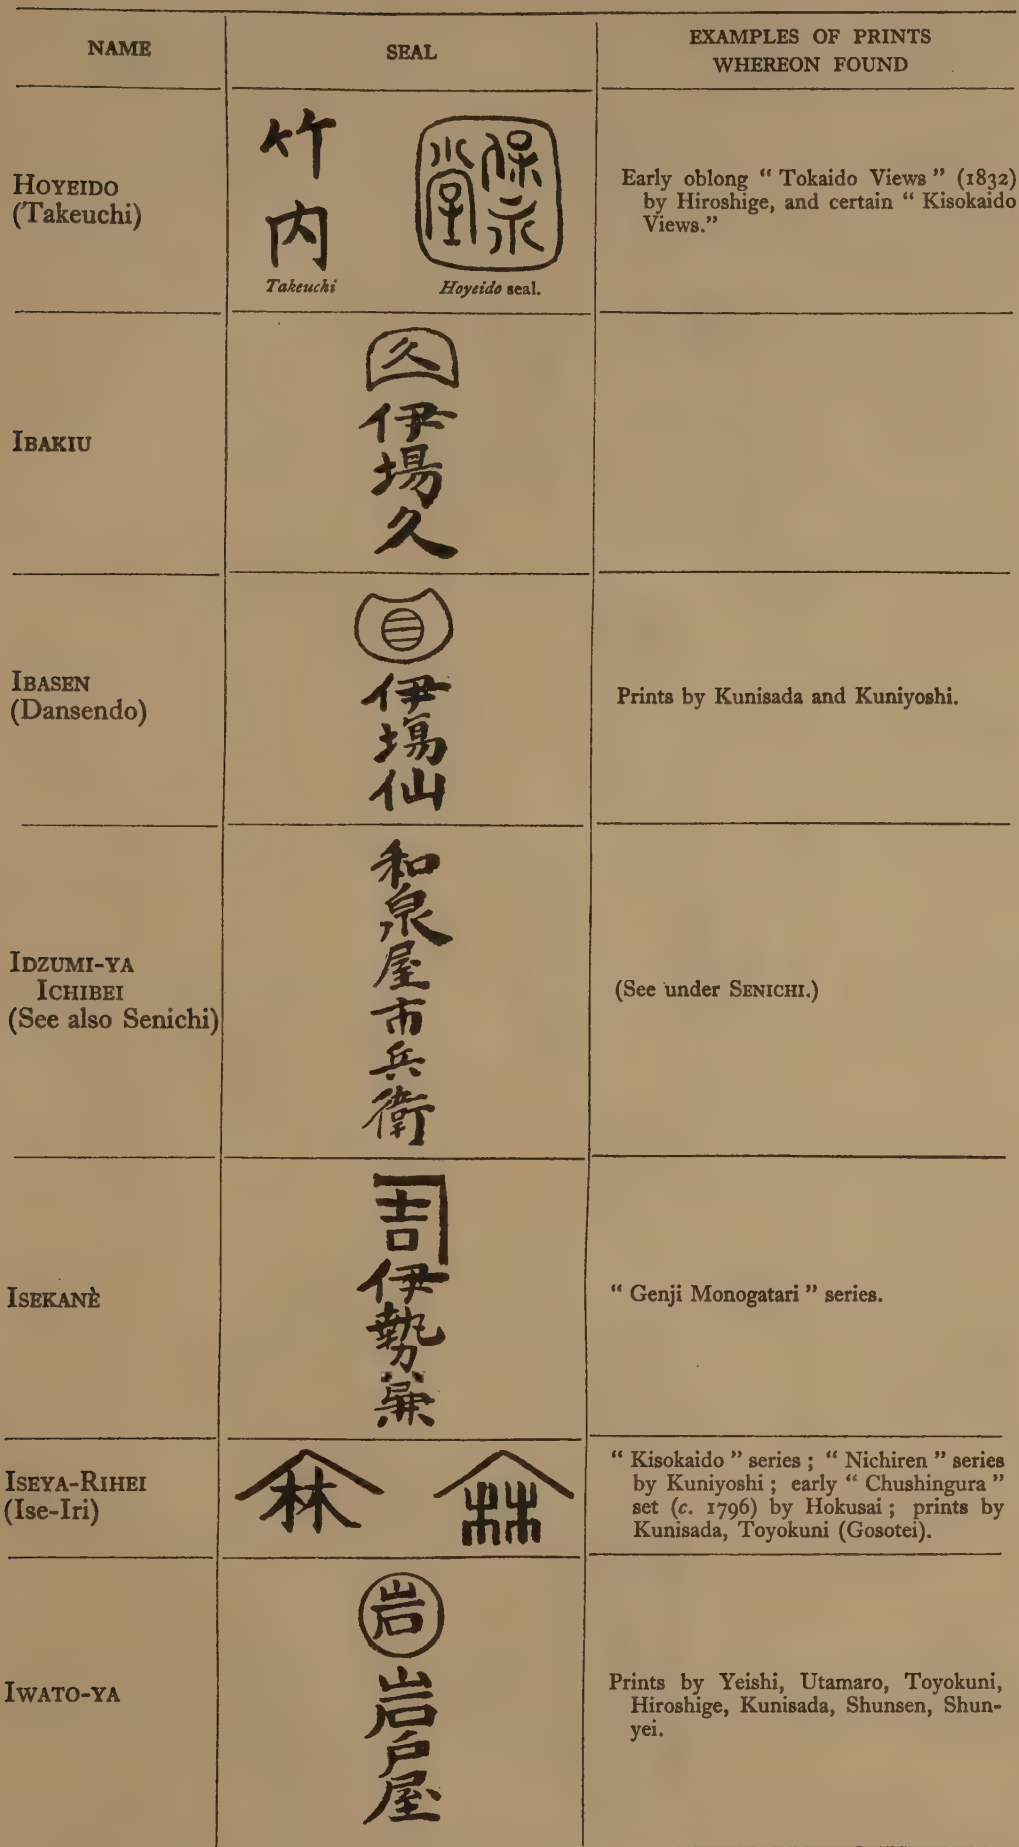 NAME
SEAL
EXAMPLES OF PRINTS
WHEREON FOUND
HOYEIDO
(Takeuchi)
竹
内
Takeuchi
保永
堂
Hoyeido seal.
Early oblong “ Tokaido Views ” (1832)
by Hiroshige, and certain “ Kisokaido
Views.”
IBAKIU
久
伊
場
久
IBASEN
(Dansendo)
伊
場
仙
Prints by Kunisada and Kuniyoshi.
IDZUMI-YA
ICHIBEI
(See also Senichi)
和
泉
屋
市
兵
衛
(See under SENICHI.)
ISEKANÈ
吉
伊
勢
兼
“ Genji Monogatari ” series.
ISEYA-RIHEI
(Ise-Iri)
林
林
“ Kisokaido ” series ; “ Nichiren ” series
by Kuniyoshi ; early “ Chushingura ”
set (c. 1796) by Hokusai ; prints by
Kunisada, Toyokuni (Gosotei).
IWATO-YA
岩
岩
戸
屋
Prints by Yeishi, Utamaro, Toyokuni,
Hiroshige, Kunisada, Shunsen, Shun-
yei.